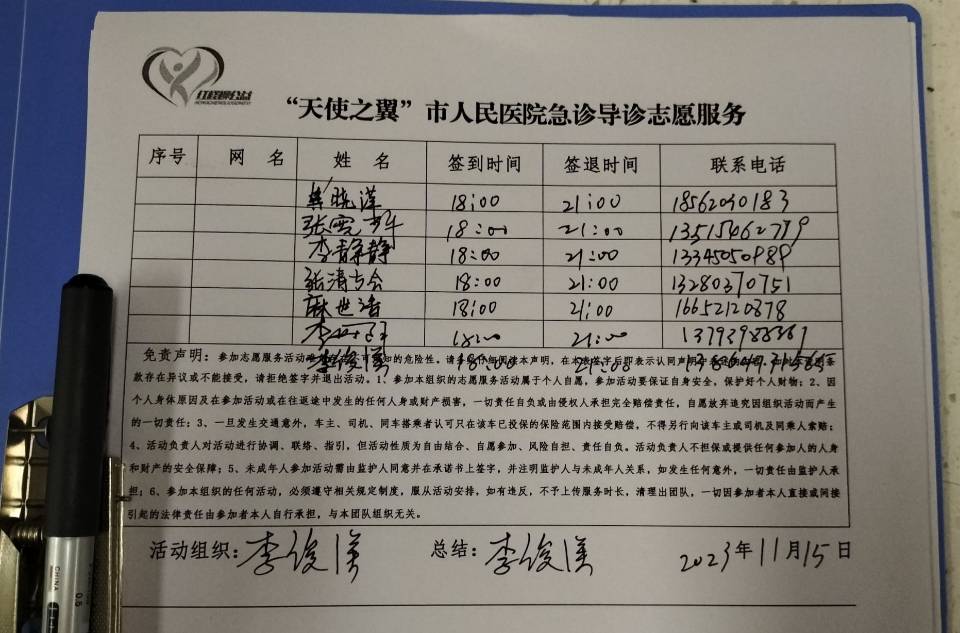 红橙柳公益
“天使之翼”市人民医院急诊导诊志愿服务
序号 网 名 姓 名 签到时间 签退时间 联系电话
晓洋 18:00 21:00 18562090183
张雪 18:00 21:00 13515462779
李静静 18:00 21:00 13345050989
张清 18:00 21:00 13280370751
麻世浩 18:00 21:00 16652120878
李 18:00 21:00
免责声明：参加志愿服务活动
李俊漢 18:00 21:00
款存在异议或不能接受，请拒绝签字并退出活动。1、参加本组织的志愿服务活动属于个人自愿，参加活动要保证自身安全，保护好个人财物；2、因
个人身体原因及在参加活动或在往返途中发生的任何人身或财产损害，一切责任自负或由侵权人承担完全赔偿责任，自愿放弃追究因组织活动而产生
的一切责任；3、一旦发生交通意外，车主、司机、同车搭乘者认可只在该车已投保的保险范围内接受赔偿，不得另行向该车主或司机及同乘人索赔；
4、活动负责人对活动进行协调、联络、指引，但活动性质为自由结合、自愿参加、风险自担、责任自负。活动负责人不担保或提供任何参加人的人身
和财产的安全保障；5、未成年人参加活动需由监护人同意并在承诺书上签字，并注明监护人与未成年人关系，如发生任何意外，一切责任由监护人承
担；6、参加本组织的任何活动，必须遵守相关规定制度，服从活动安排，如有违反，不予上传服务时长，清理出团队，一切因参加者本人直接或间接
引起的法律责任由参加者本人自行承担，与本团队组织无关。
活动组织：李俊漢 总结：李俊漢 2023年11月15日
CHINA
0.5